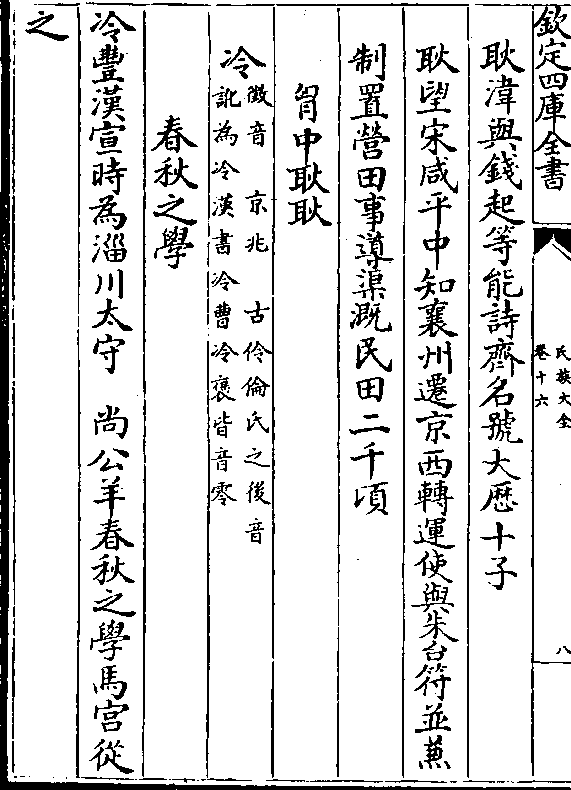 欽定四庫全書
氏族大全
卷十六
八
耿湋與錢起等能詩齊名號大厯十子
耿望宋咸平中知襄州遷京西轉運使與朱台符並兼
制置營田事導渠溉民田二千頃
胷中耿耿
冷
徴音 京兆 古伶倫氏之後音
訛為冷漢書冷曹冷褒皆音零
春秋之學
冷豐漢宣時為淄川太守 尚公羊春秋之學馬宫從
之